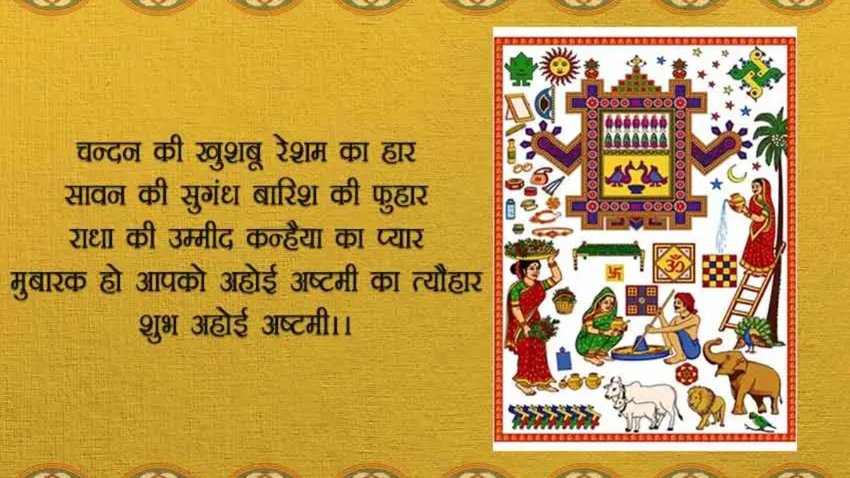 चन्दन की खुशबू रेशम का हार
सावन की सुगंध बारिश की फुहार
राधा की उम्मीद कन्हैया का प्यार
मुबारक हो आपको अहोई अष्टमी का त्यौहार
शुभ अहोई अष्टमी।।
ॐ